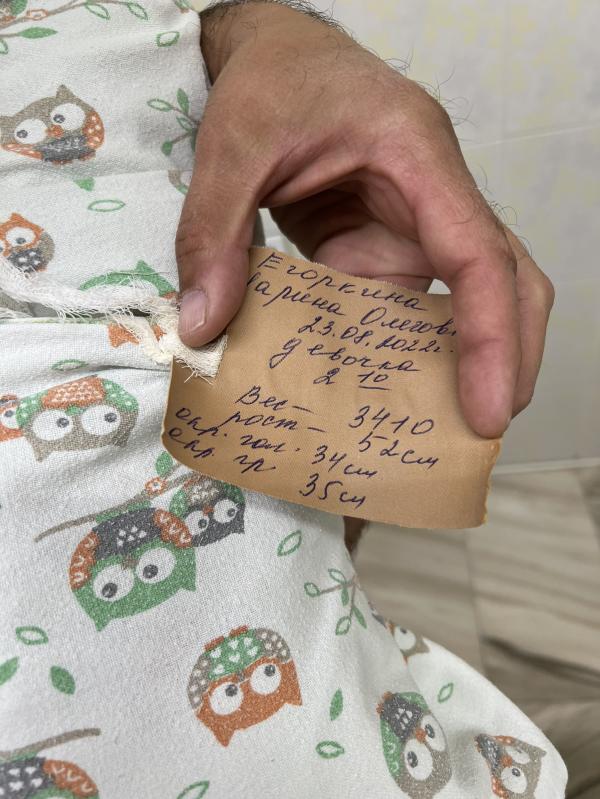 Егоркина
Олегов
23.08.2022г.
девочка
2 10
Вес – 3410
рост – 52 см
окр. гол. 34 см
окр. гр. 35 см